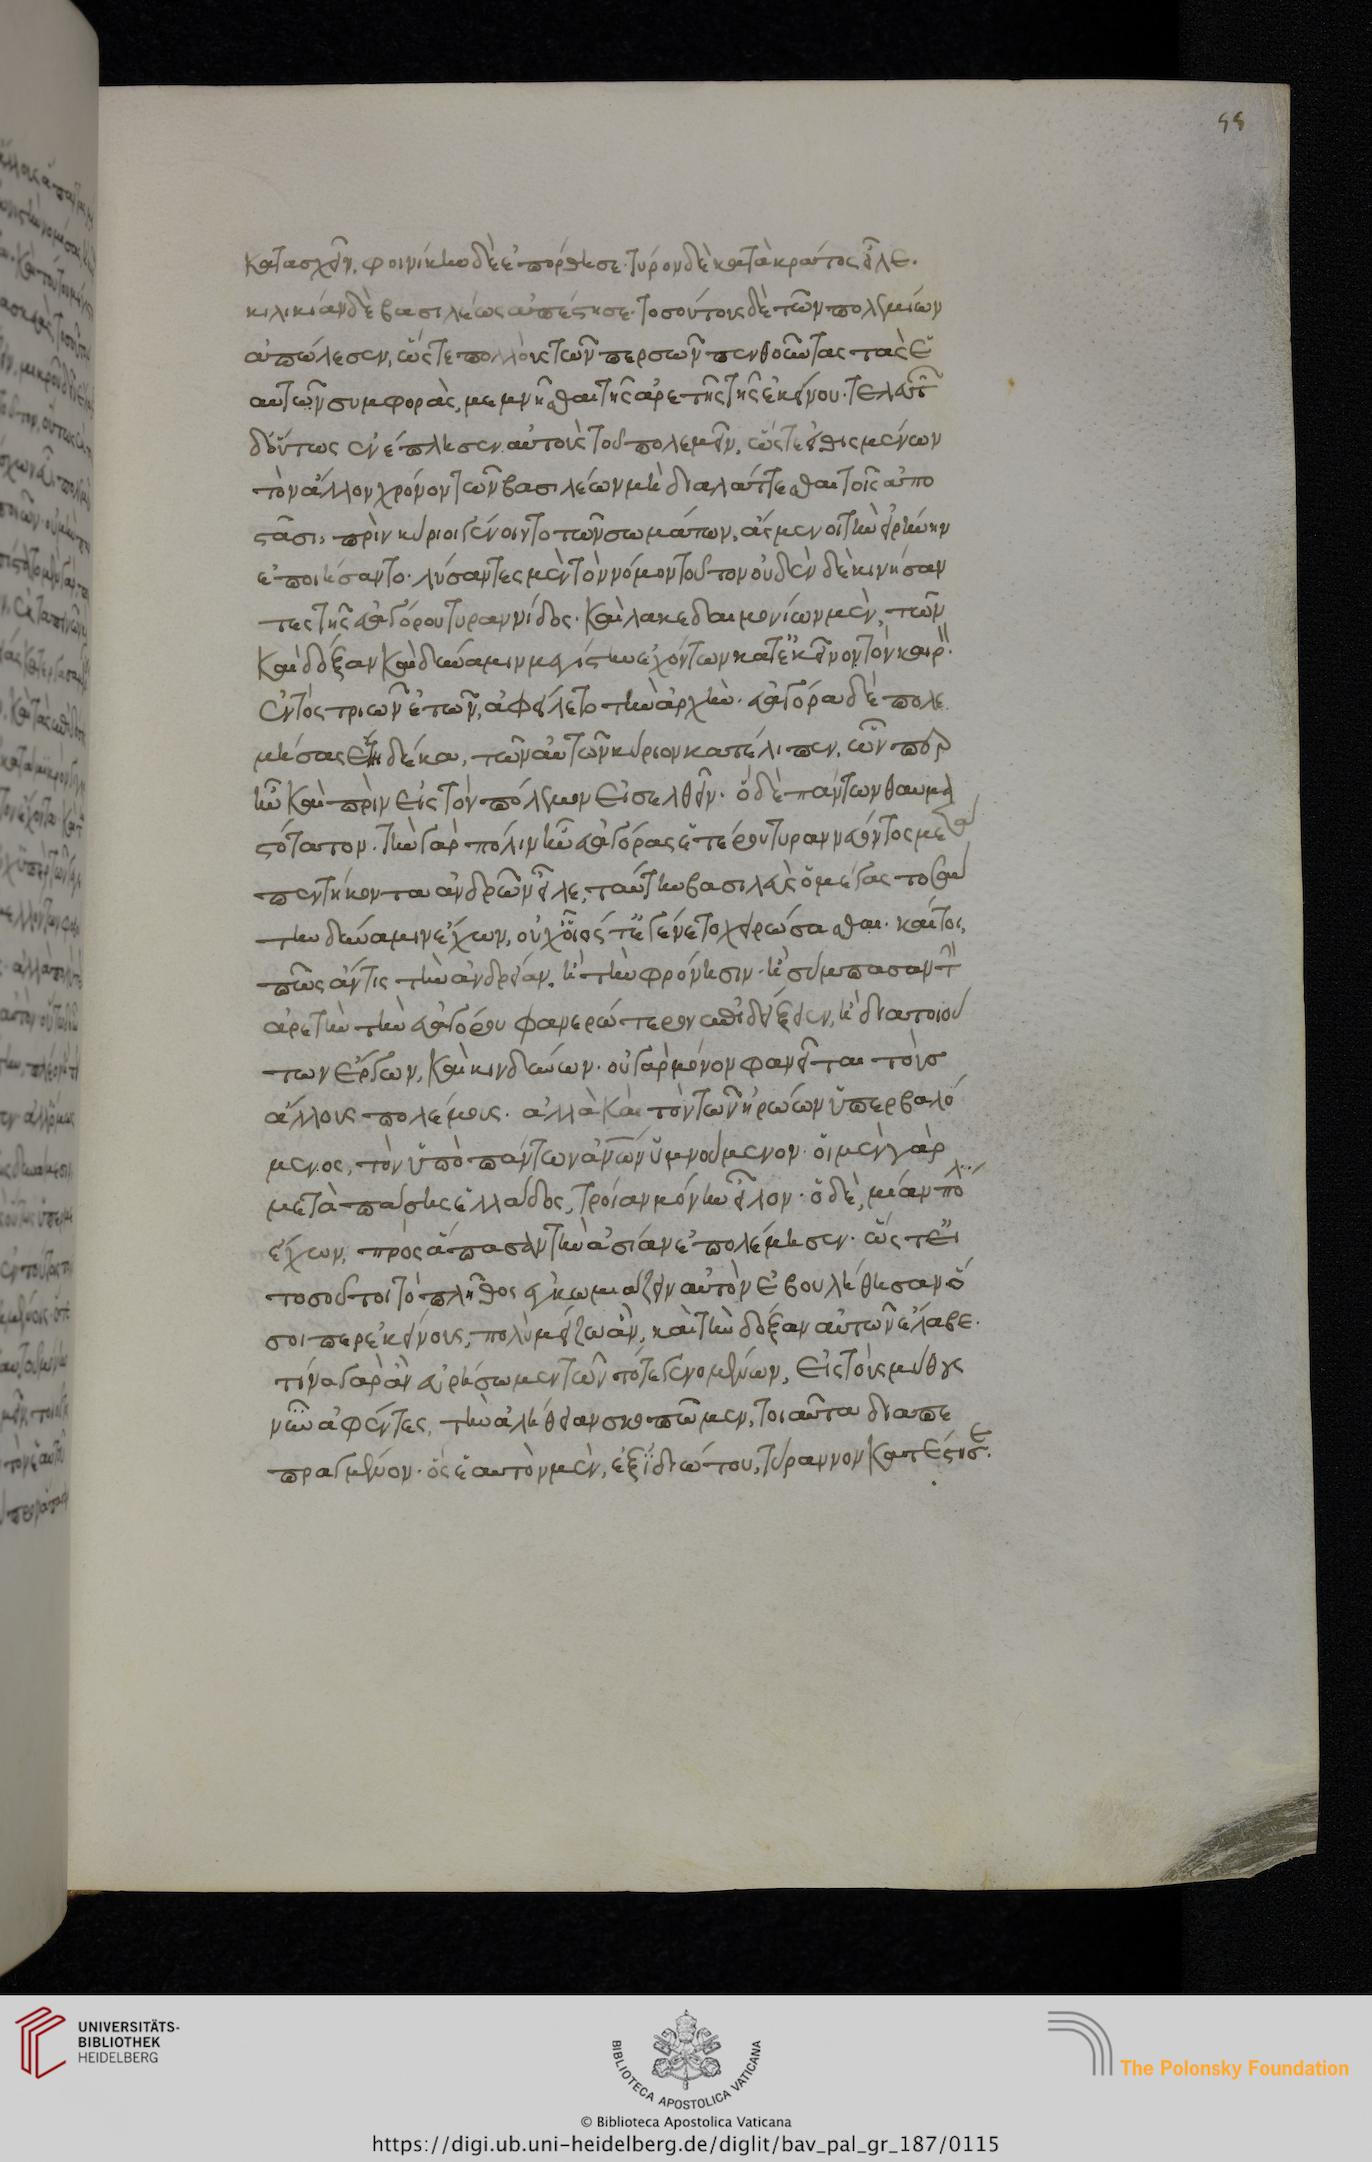 55
κατασχεῖν. φοινίκην δὲ ἐπόρθησε. τύρον δὲ κατὰ κράτος εἷλε.
κιλικίαν δὲ βασιλέως ἀπέστησε. τοσούτους δὲ τῶν πολεμίων
ἀπώλεσεν, ὥστε πολλοὺς τῶν περσῶν πενθοῦντας τὰς ἑ
αυτῶν συμφορὰς, μεμνῆσθαι τῆς ἀρετῆς τῆς ἐκείνου. τελευτῶν
δ' οὕτως ἐνέπλησεν αὐτοὺς τοῦ πολεμεῖν, ὥστε εἰθισμένων
τὸν ἄλλον χρόνον τῶν βασιλέων μὴ διαλάττεσθαι τοῖς ἀπο
στᾶσι, πρὶν κύριοι γένοιντο τῶν σωμάτων, ἄσμενοι τὴν εἰρήνην
ἐποιήσαντο. λύσαντες μὲν τὸν νόμον τοῦτον οὐδὲν δὲ κινήσαν
τες τῆς εὐαγόρου τυραννίδος. καὶ λακεδαιμονίων μὲν, τῶν
καὶ δόξαν καὶ δύναμιν μεγίστην ἐχόντων κατ' ἐκεῖνον τὸν καιρ
ἐντὸς τριῶν ἐτῶν, ἀφείλετο τὴν ἀρχὴν. εὐαγόρα δὲ πολε
μήσας ἔτη δέκα, τῶν αὐτῶν κύριον κατέλιπεν, ὧν περ
ἦν καὶ πρὶν εἰς τὸν πόλεμον εἰσελθεῖν. ὃ δὲ πάντων θαυμα
στότατον. τὴν γὰρ πόλιν ἣν εὐαγόρας ἑτέρου τυραννεύοντος με
πεντήκοντα ἀνδρῶν εἷλε, ταύτην βασιλεὺς ὁ μέγας τοσαύ
την δύναμιν ἔχων, οὐχ οἷός τ' ἐγένετο χειρώσασθαι. καίτοι,
πῶς ἄν τις τὴν ἀνδρείαν. ἢ τὴν φρόνησιν. ἢ σύμπασαν τὴν
ἀρετὴν τὴν εὐαγόρου φανερώτερον ἐπιδείξειεν, ἢ διὰ τοιού
των ἔργων, καὶ κινδύνων. οὐ γὰρ μόνον φανεῖται τοὺς
ἄλλους πολέμους. ἀλλὰ καὶ τὸν τῶν ἡρώων ὑπερβαλό
μενος, τὸν ὑπὸ πάντων ἀνων ὑμνούμενον. οἱ μὲν γὰρ
μετὰ πάσης ἑλλάδος, τροίαν μόνην εἷλον. ὁ δὲ, μίαν πολ
ἔχων, πρὸς ἅπασαν τὴν ἀσίαν ἐπολέμησεν. ὥστε εἰ
τοσοῦτοι τὸ πλῆθος ἐγκωμιάζειν αὐτὸν ἐβουλήθησαν ὅ
σοι περ ἐκείνους, πολὺ μείζω ἂν, καὶ τὴν δόξαν αὐτῶν ἔλαβε.
τίνα γὰρ ἂν εὑρήσωμεν τῶν τότε γενομένων, εἰ τοὺς μύθους
νῦν ἀφέντες, τὴν ἀλήθειαν σκοποῦμεν, τοιαῦτα διαπε
πραγμένον. ὃς ἑαυτὸν μὲν, ἐξ ἰδιώτου, τύραννον κατέστησε.
UNIVERSITÄTS-
BIBLIOTHEK
HEIDELBERG
BIBLIOTECA APOSTOLICA VATICANA
The Polonsky Foundation
© Biblioteca Apostolica Vaticana
https://digi.ub.uni-heidelberg.de/diglit/bav_pal_gr_187/0115